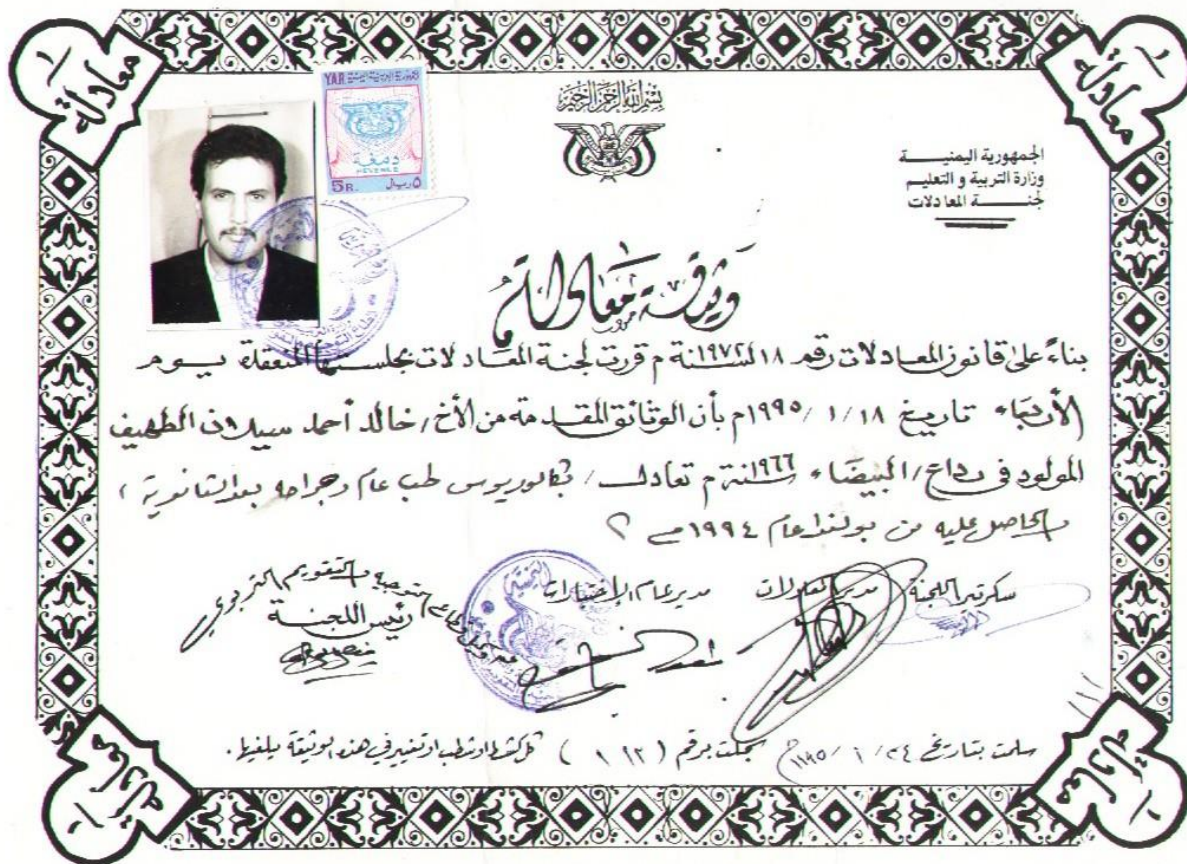 معادلة
معادلة
YAR الجمهورية العربية اليمنية
دمغة
REVENUE
5R. ٥ ريال
بسم الله الرحمن الرحيم
الجمهورية اليمنيــــة
وزارة التربية و التعليم
لجنـــة المعادلات
وثيقة معادلة
بناءً على قانون المعادلات رقم ١٨ لسنة ١٩٧٢م قررت لجنة المعادلات بجلستها المنعقدة يوم
الأربعاء تاريخ ١٨ / ١ / ١٩٩٥م بأن الوثائق المقدمة من الأخ / خالد أحمد سيلان الطهيف
المولود في رداع / البيضاء سنة ١٩٦٦م تعادل / بكالوريوس طب عام وجراحه بعد الثانوية ،
والحاصل عليه من بولندا عام ١٩٩٤م
سكرتير اللجنة مدير المعادلات مدير عام الإختبارات
التوجيه والتقويم التربوي
رئيس اللجنــة
سلمت بتاريخ ٢٤ / ١ / ١٩٩٥م سجلت برقم ( ١١٢ ) كل كشط او شطب او تغيير في هذه الوثيقة يلغيها .
معادلة
معادلة